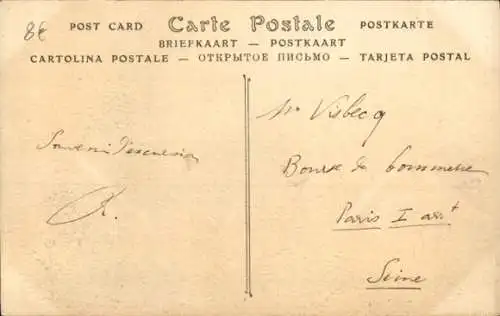 8€
POST CARD Carte Postale POSTKARTE
BRIEFKAART — POSTKAART
CARTOLINA POSTALE — ОТКРЫТОЕ ПИСЬМО — TARJETA POSTAL
Souvenir d'excursion
R.
Mr Visbecq
Bourse de Commerce
Paris I arrt
Seine